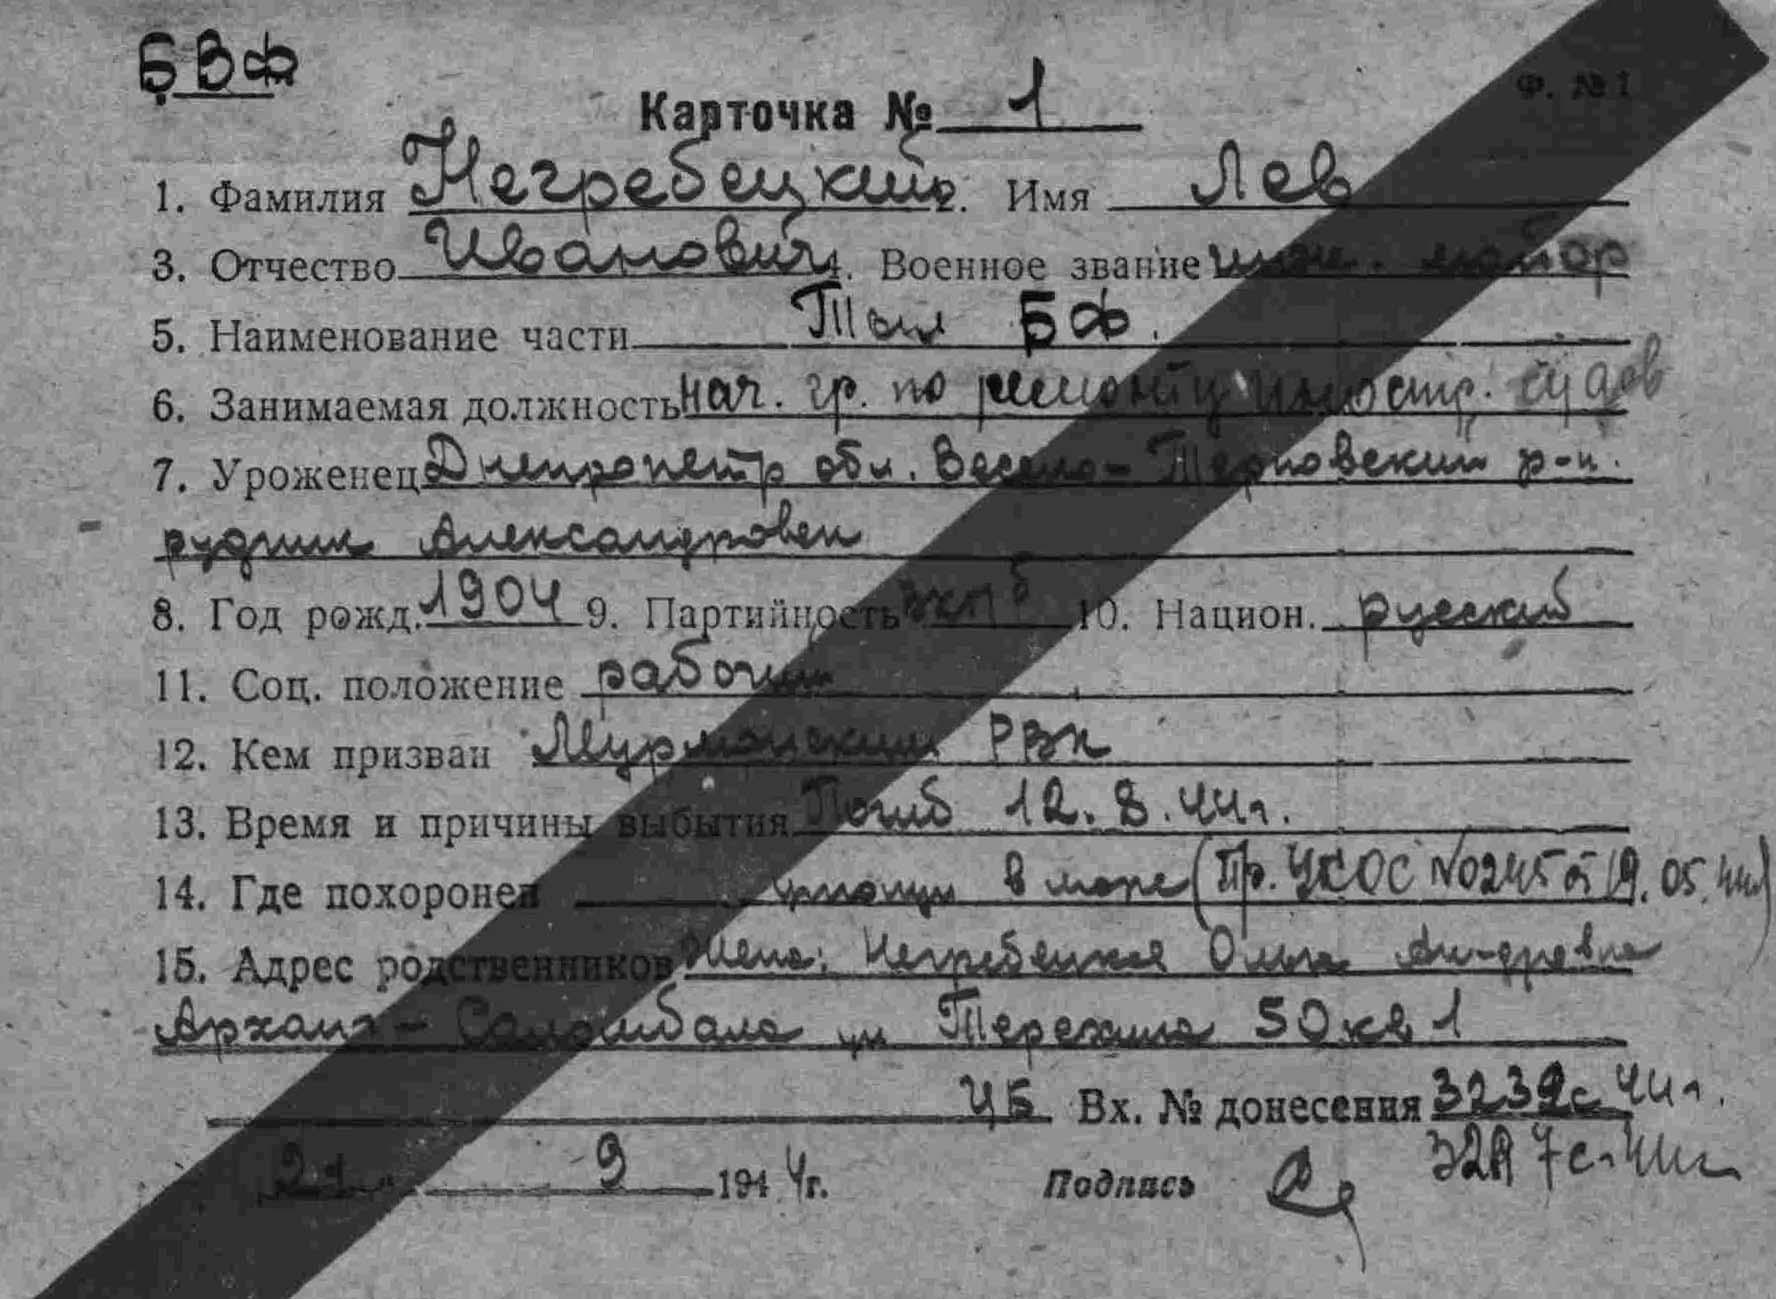 БВФ
Карточка № 1
Ф. № 1
1. Фамилия Негребецкий 2. Имя Лев
3. Отчество Иванович 4. Военное звание инж. майор
5. Наименование части Тыл БФ.
6. Занимаемая должность нач. гр. по ремонту иностр. судов
7. Уроженец Днепропетр обл. Весело-Терновский р-н.
рудник Александровен
8. Год рожд. 1904 9. Партийность вкпб 10. Национ. русский
11. Соц. положение рабочий
12. Кем призван Мурманским РВК
13. Время и причины выбытия Погиб 12.8.44г.
14. Где похоронен утонул в море (Пр. УКОС №0245 от 19.05.44)
15. Адрес родственников Жена: Негребецкая Ольга Андреевна
Арханг- Соломбала ул Терехина 50 кв 1
ЦБ Вх. № донесения 3239с 44г.
9 1944г. Подпись